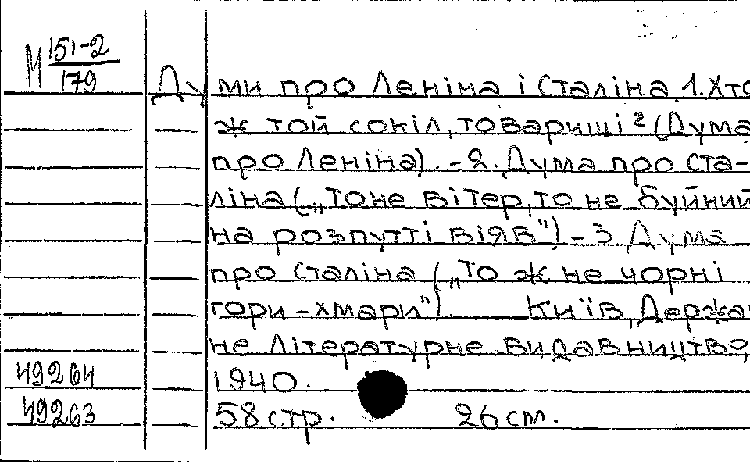 М 151-2
179
Думи про Леніна і Сталіна. 1. Хто
ж той сокіл, товариші? (Дума
про Леніна). - 2. Дума про Ста-
ліна („Тоне вітер, то не буйний
на розпутті віяв") - 3. Дума
про Сталіна („То ж не чорні
гори-хмари"). Київ, Держав
не літературне видавництво,
49264
1940.
49263
58 стр. 26 см.